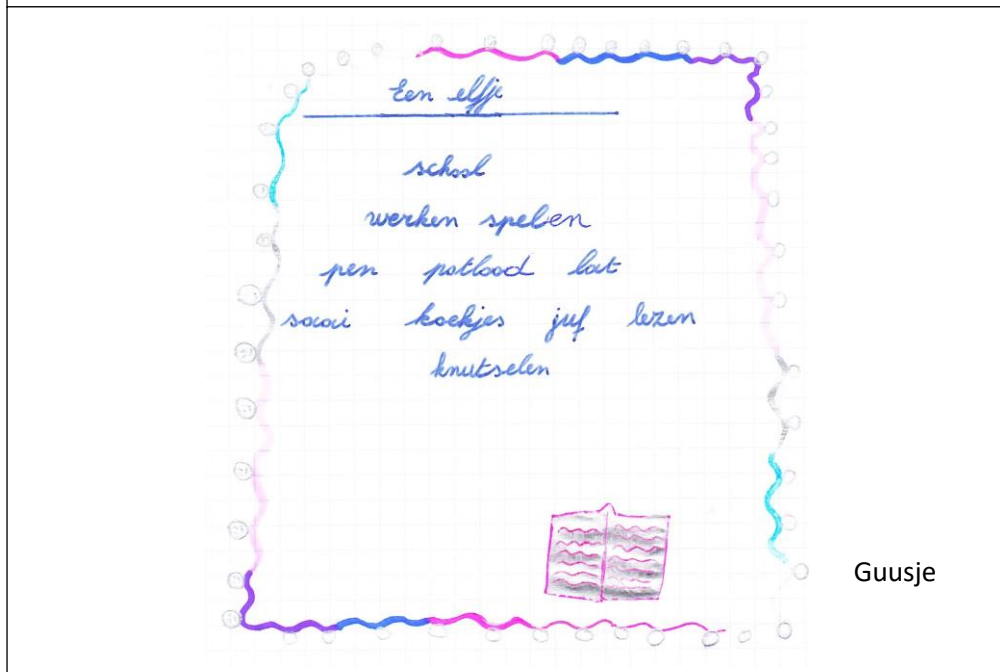 Een elfje
school
werken spelen
pen potlood lat
saai koekjes juf lezen
knutselen
Guusje